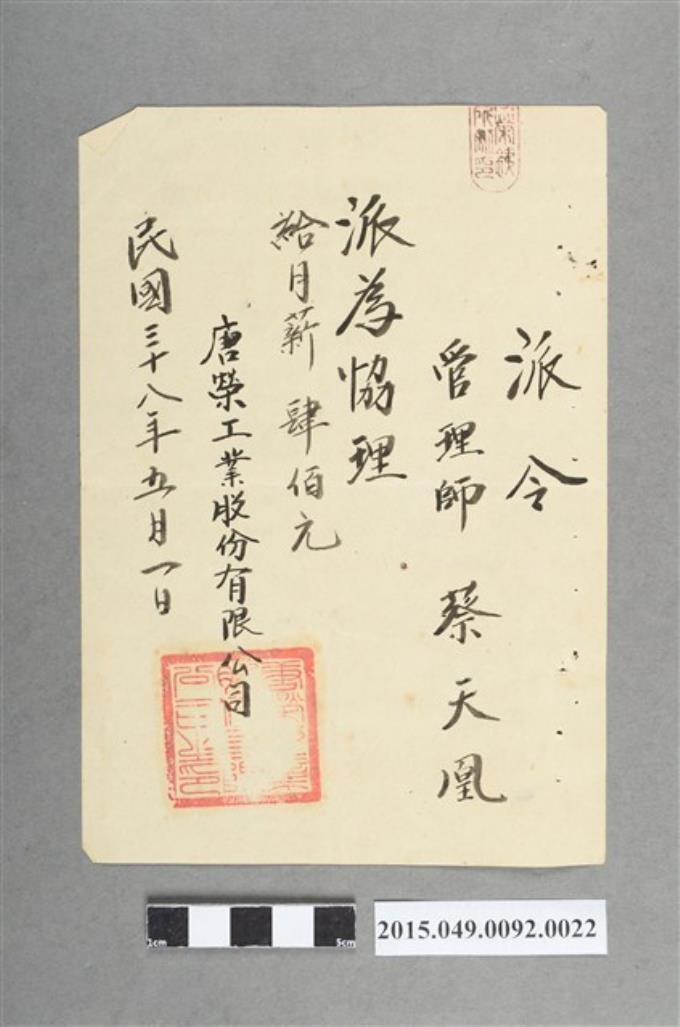 派令
管理師 蔡天凰
派為協理
給月薪肆佰元
唐榮工業股份有限公司
民國三十八年五月一日
1cm
5cm
2015.049.0092.0022